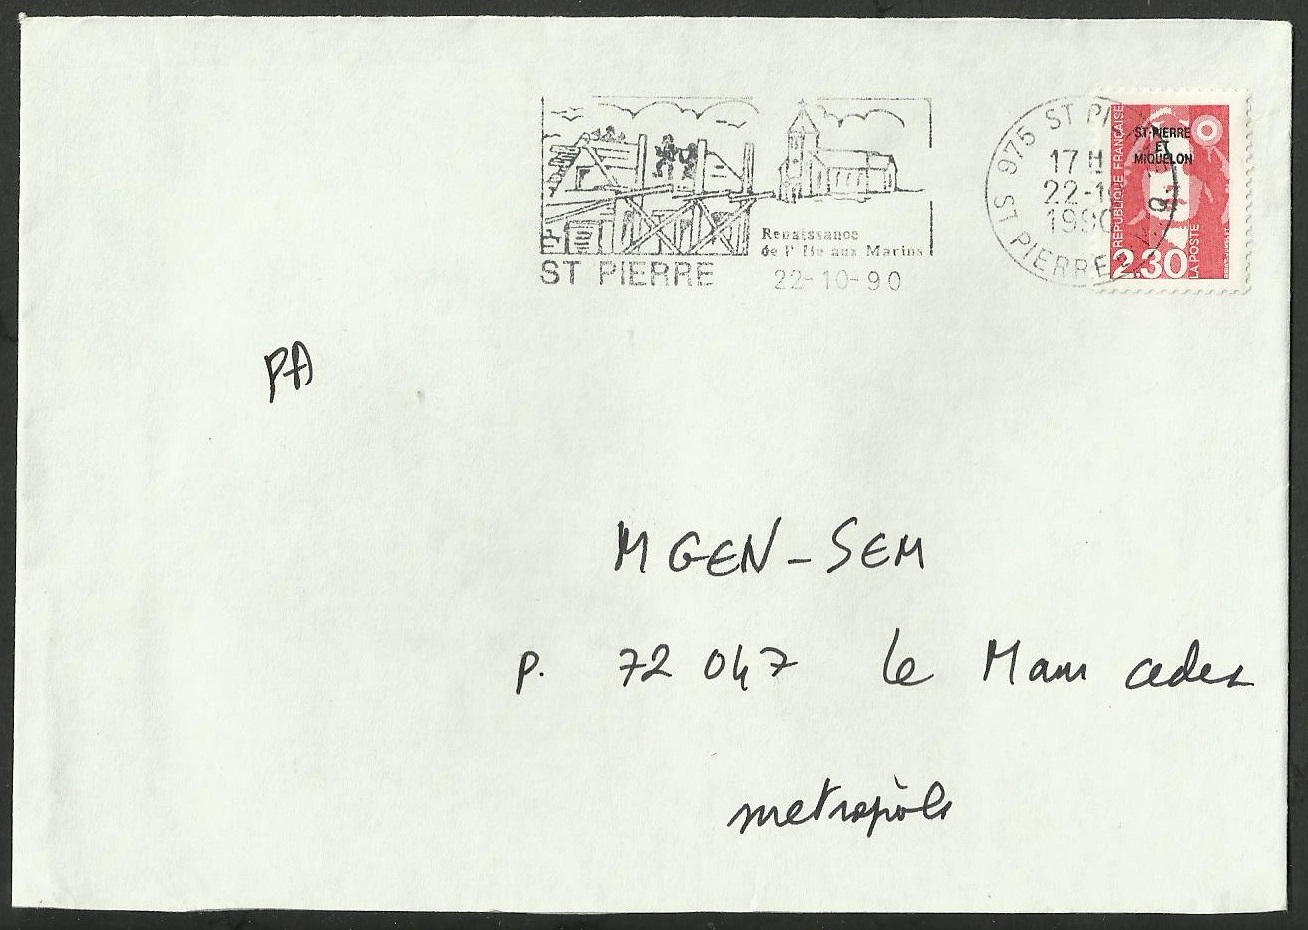 Renaissance
de l' Ile aux Marins
ST PIERRE
22-10-90
975 ST PI
17 H
22-1
1990
ST PIERRE
REPUBLIQUE FRANÇAISE
ST-PIERRE
ET
MIQUELON
2.30
LA POSTE
PA
MGEN-SEM
P. 72 047 le Mans cedex
metropôle